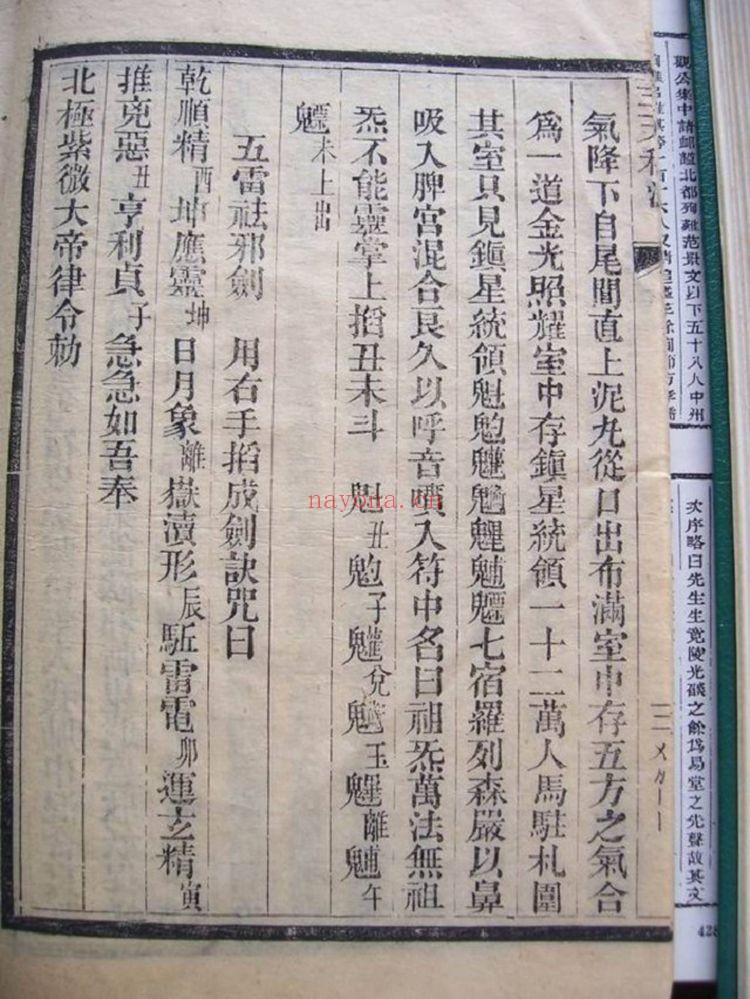 觀公集中請卹諡北都殉難范景文以下五十八人中州
次序略曰先生生竟陵光燄之餘爲易堂之先聲故其文
428
三 〤〦〡〡
氣降下自尾閭直上泥丸從口出布滿室中存五方之氣合
爲一道金光照耀室中存鎭星統領一十二萬人馬駐札圍
其室只見鎭星統領魒七宿羅列森嚴以鼻
吸入脾宮混合良久以呼音噀入符中名曰祖炁萬法無祖
炁不能靈掌上搯丑未斗 丑子兌玉離午
魒未上出
五雷祛邪劍 用右手搯成劍訣咒曰
乾順精酉坤應靈坤日月象離嶽瀆形辰駈雷電卯運玄精寅
推兇惡丑亨利貞子急急如吾奉
北極紫微大帝律令勅
nayona.cn